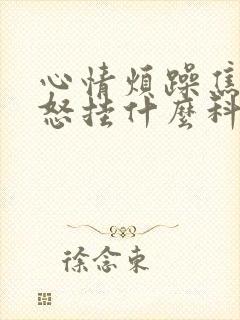 心情煩躁焦
怒挂什麼科
徐念東